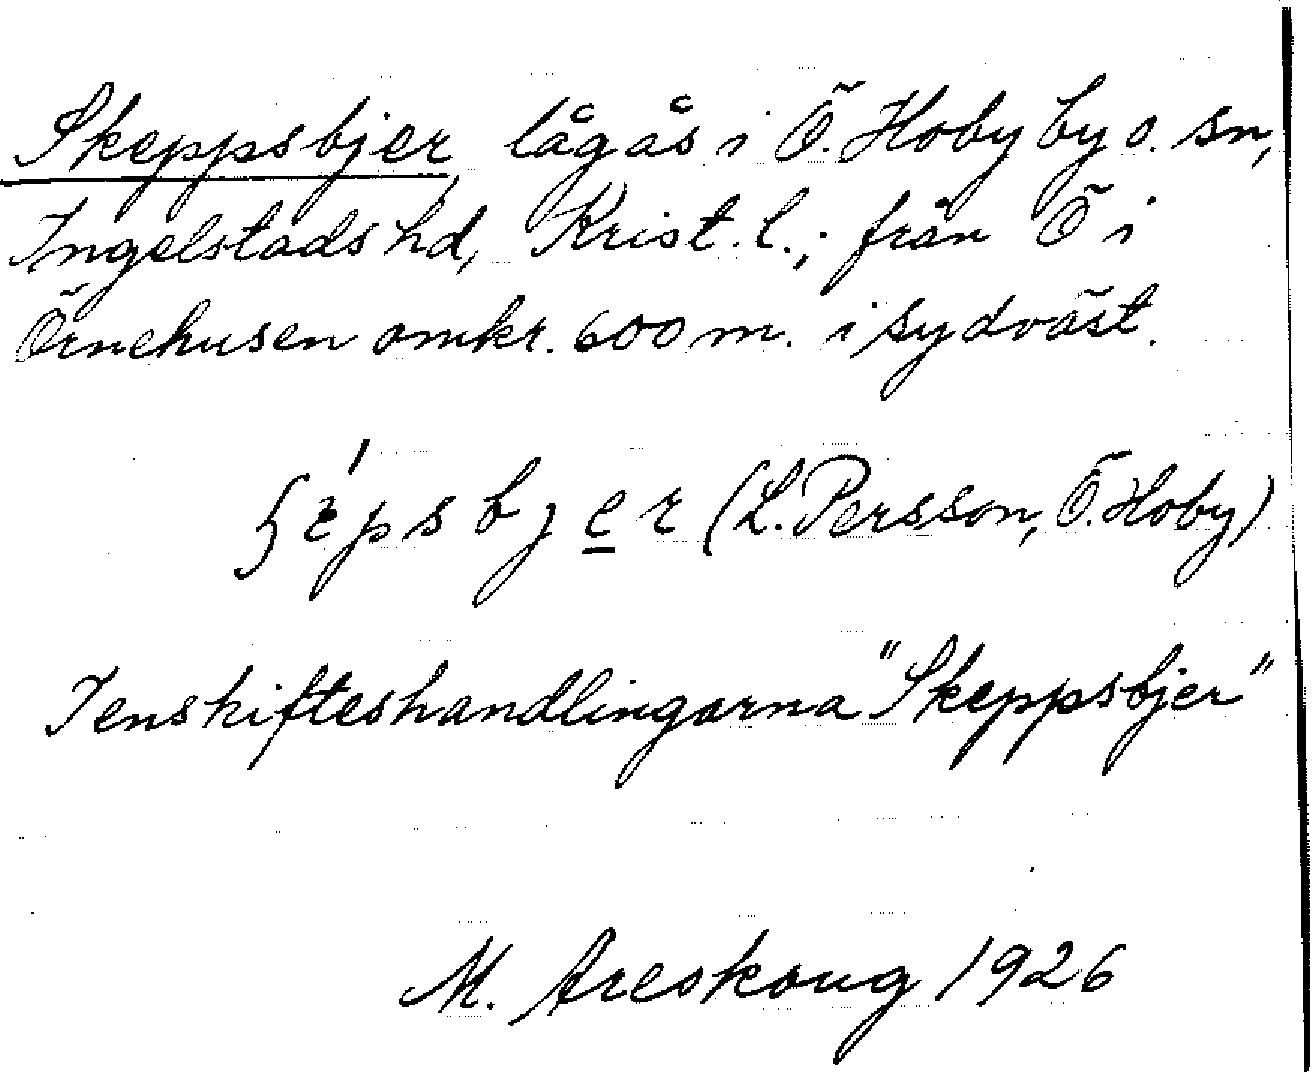 Skeppsbjer, lågås i Ö. Hoby by o. sn,
Ingelstads hd, Krist. l.; från Ö i
Örnehusen omkr. 600 m. i sydväst.
(L. Persson, Ö. Hoby)
I enskifteshandlingarna "Skeppsbjer"
M. Areskoug 1926